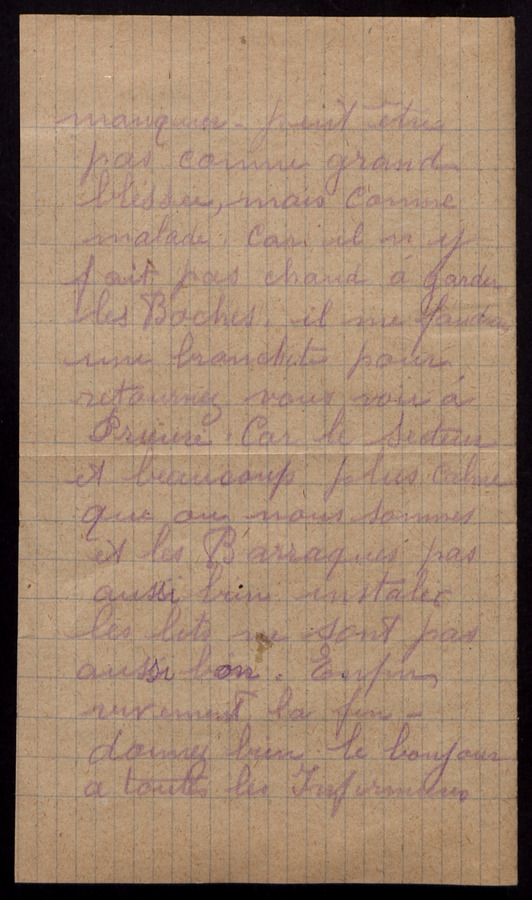 manquer - peut être
pas comme grand
bléssée, mais comme
malade. Car il n y
fait pas chaud á garder
les Boches, il me faudrai
une branchite pour
retournez vous voir á
Prieuré. Car le Secteur
et beaucoup plus calme
que ou nous sommes
et les Barraques pas
aussi bien instaler
les lits ne sont pas
aussi bon. Enfin,
vivement la fin -
donnez bien le bonjour
a toutes les Infirmieres